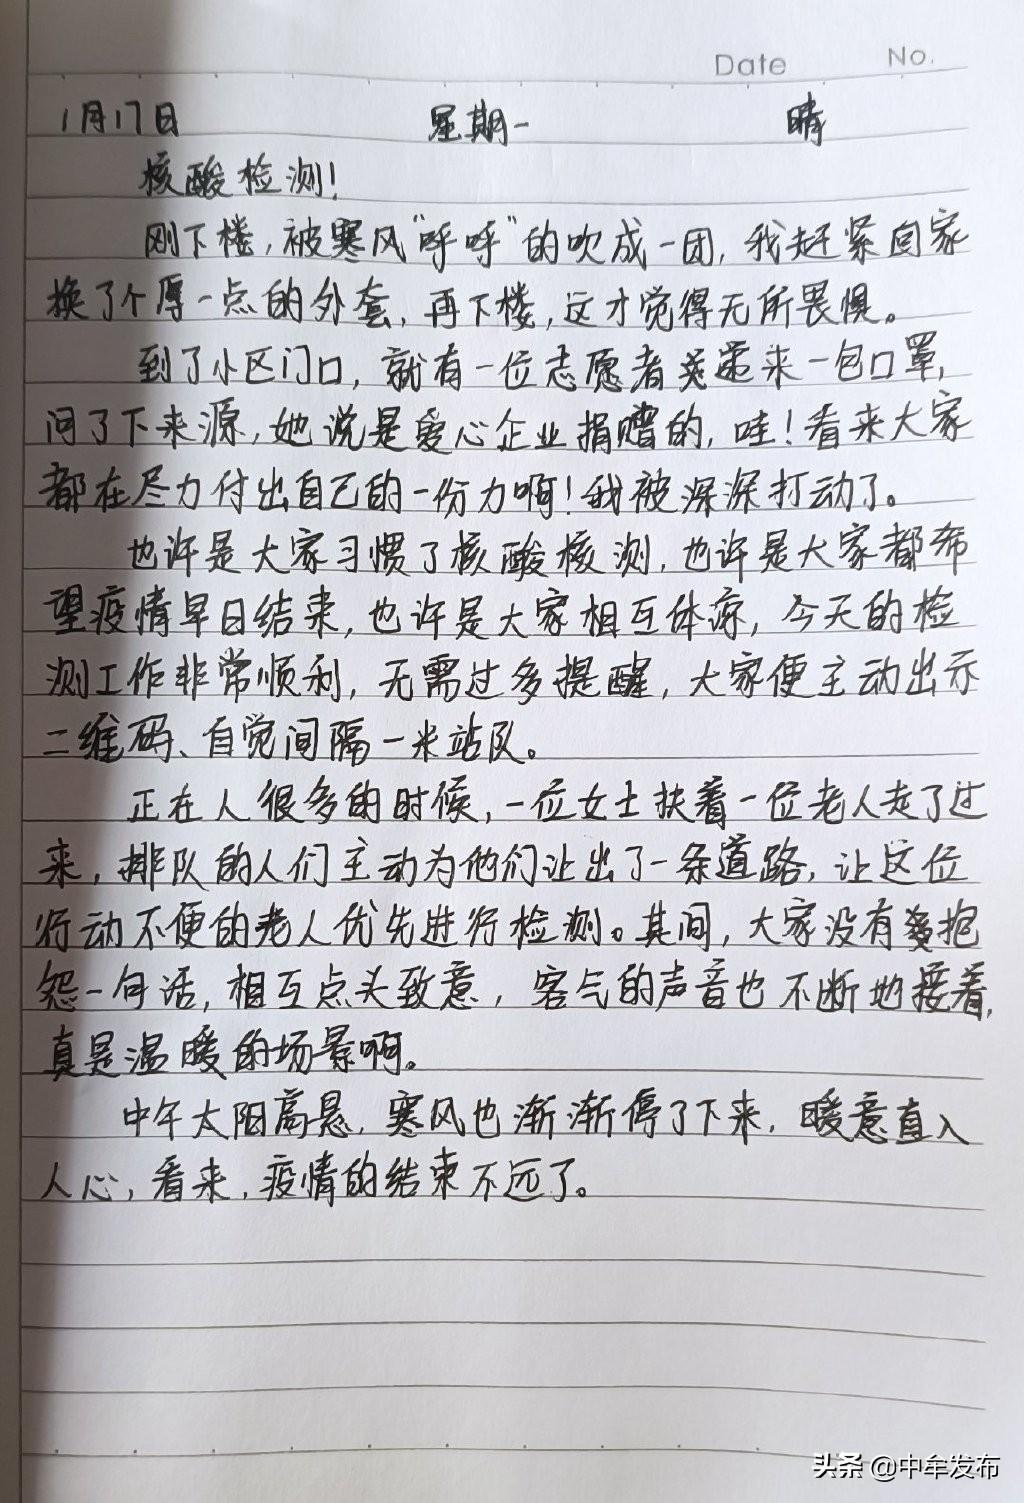 Date No.
1月17日 星期一 晴
核酸检测！
刚下楼，被寒风“呼呼”的吹成一团，我赶紧回家
换了个厚一点的外套，再下楼，这才觉得无所畏惧。
到了小区门口，就有一位志愿者递来一包口罩，
问了下来源，她说是爱心企业捐赠的，哇！看来大家
都在尽力付出自己的一份力啊！我被深深打动了。
也许是大家习惯了核酸核测，也许是大家都希
望疫情早日结束，也许是大家相互体谅，今天的检
测工作非常顺利，无需过多提醒，大家便主动出示
二维码、自觉间隔一米站队。
正在人很多的时候，一位女士扶着一位老人走了过
来，排队的人们主动为他们让出了一条道路，让这位
行动不便的老人优先进行检测。其间，大家没有多抱
怨一句话，相互点头致意，客气的声音也不断地接着，
真是温暖的场景啊。
中午太阳高悬，寒风也渐渐停了下来，暖意直入
人心，看来，疫情的结束不远了。
头条 @中牟发布